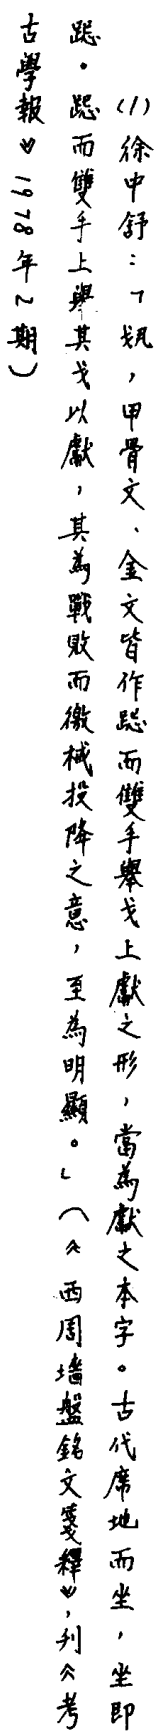 (1)徐中舒：「㚔，甲骨文、金文皆作跽而雙手舉戈上獻之形，當為獻之本字。古代席地而坐，坐即
跽。跽而雙手上舉其戈以獻，其為戰敗而繳械投降之意，至為明顯。」（《西周墻盤銘文箋釋》，刊《考
古學報》1978年2期）